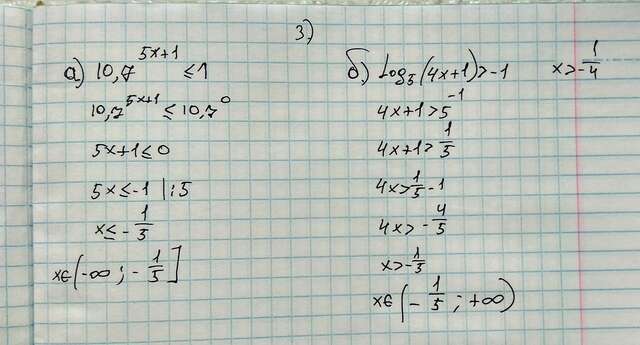 3)
а) 10,7^(5x+1) ≤ 1
10,7^(5x+1) ≤ 10,7^0
5x+1 ≤ 0
5x ≤ -1 | :5
x ≤ - 1/5
x∈(-∞ ; - 1/5]
б) Log₅(4x+1) > -1 x > - 1/4
4x+1 > 5^(-1)
4x+1 > 1/5
4x > 1/5 - 1
4x > - 4/5
x > - 1/5
x∈(- 1/5 ; +∞)